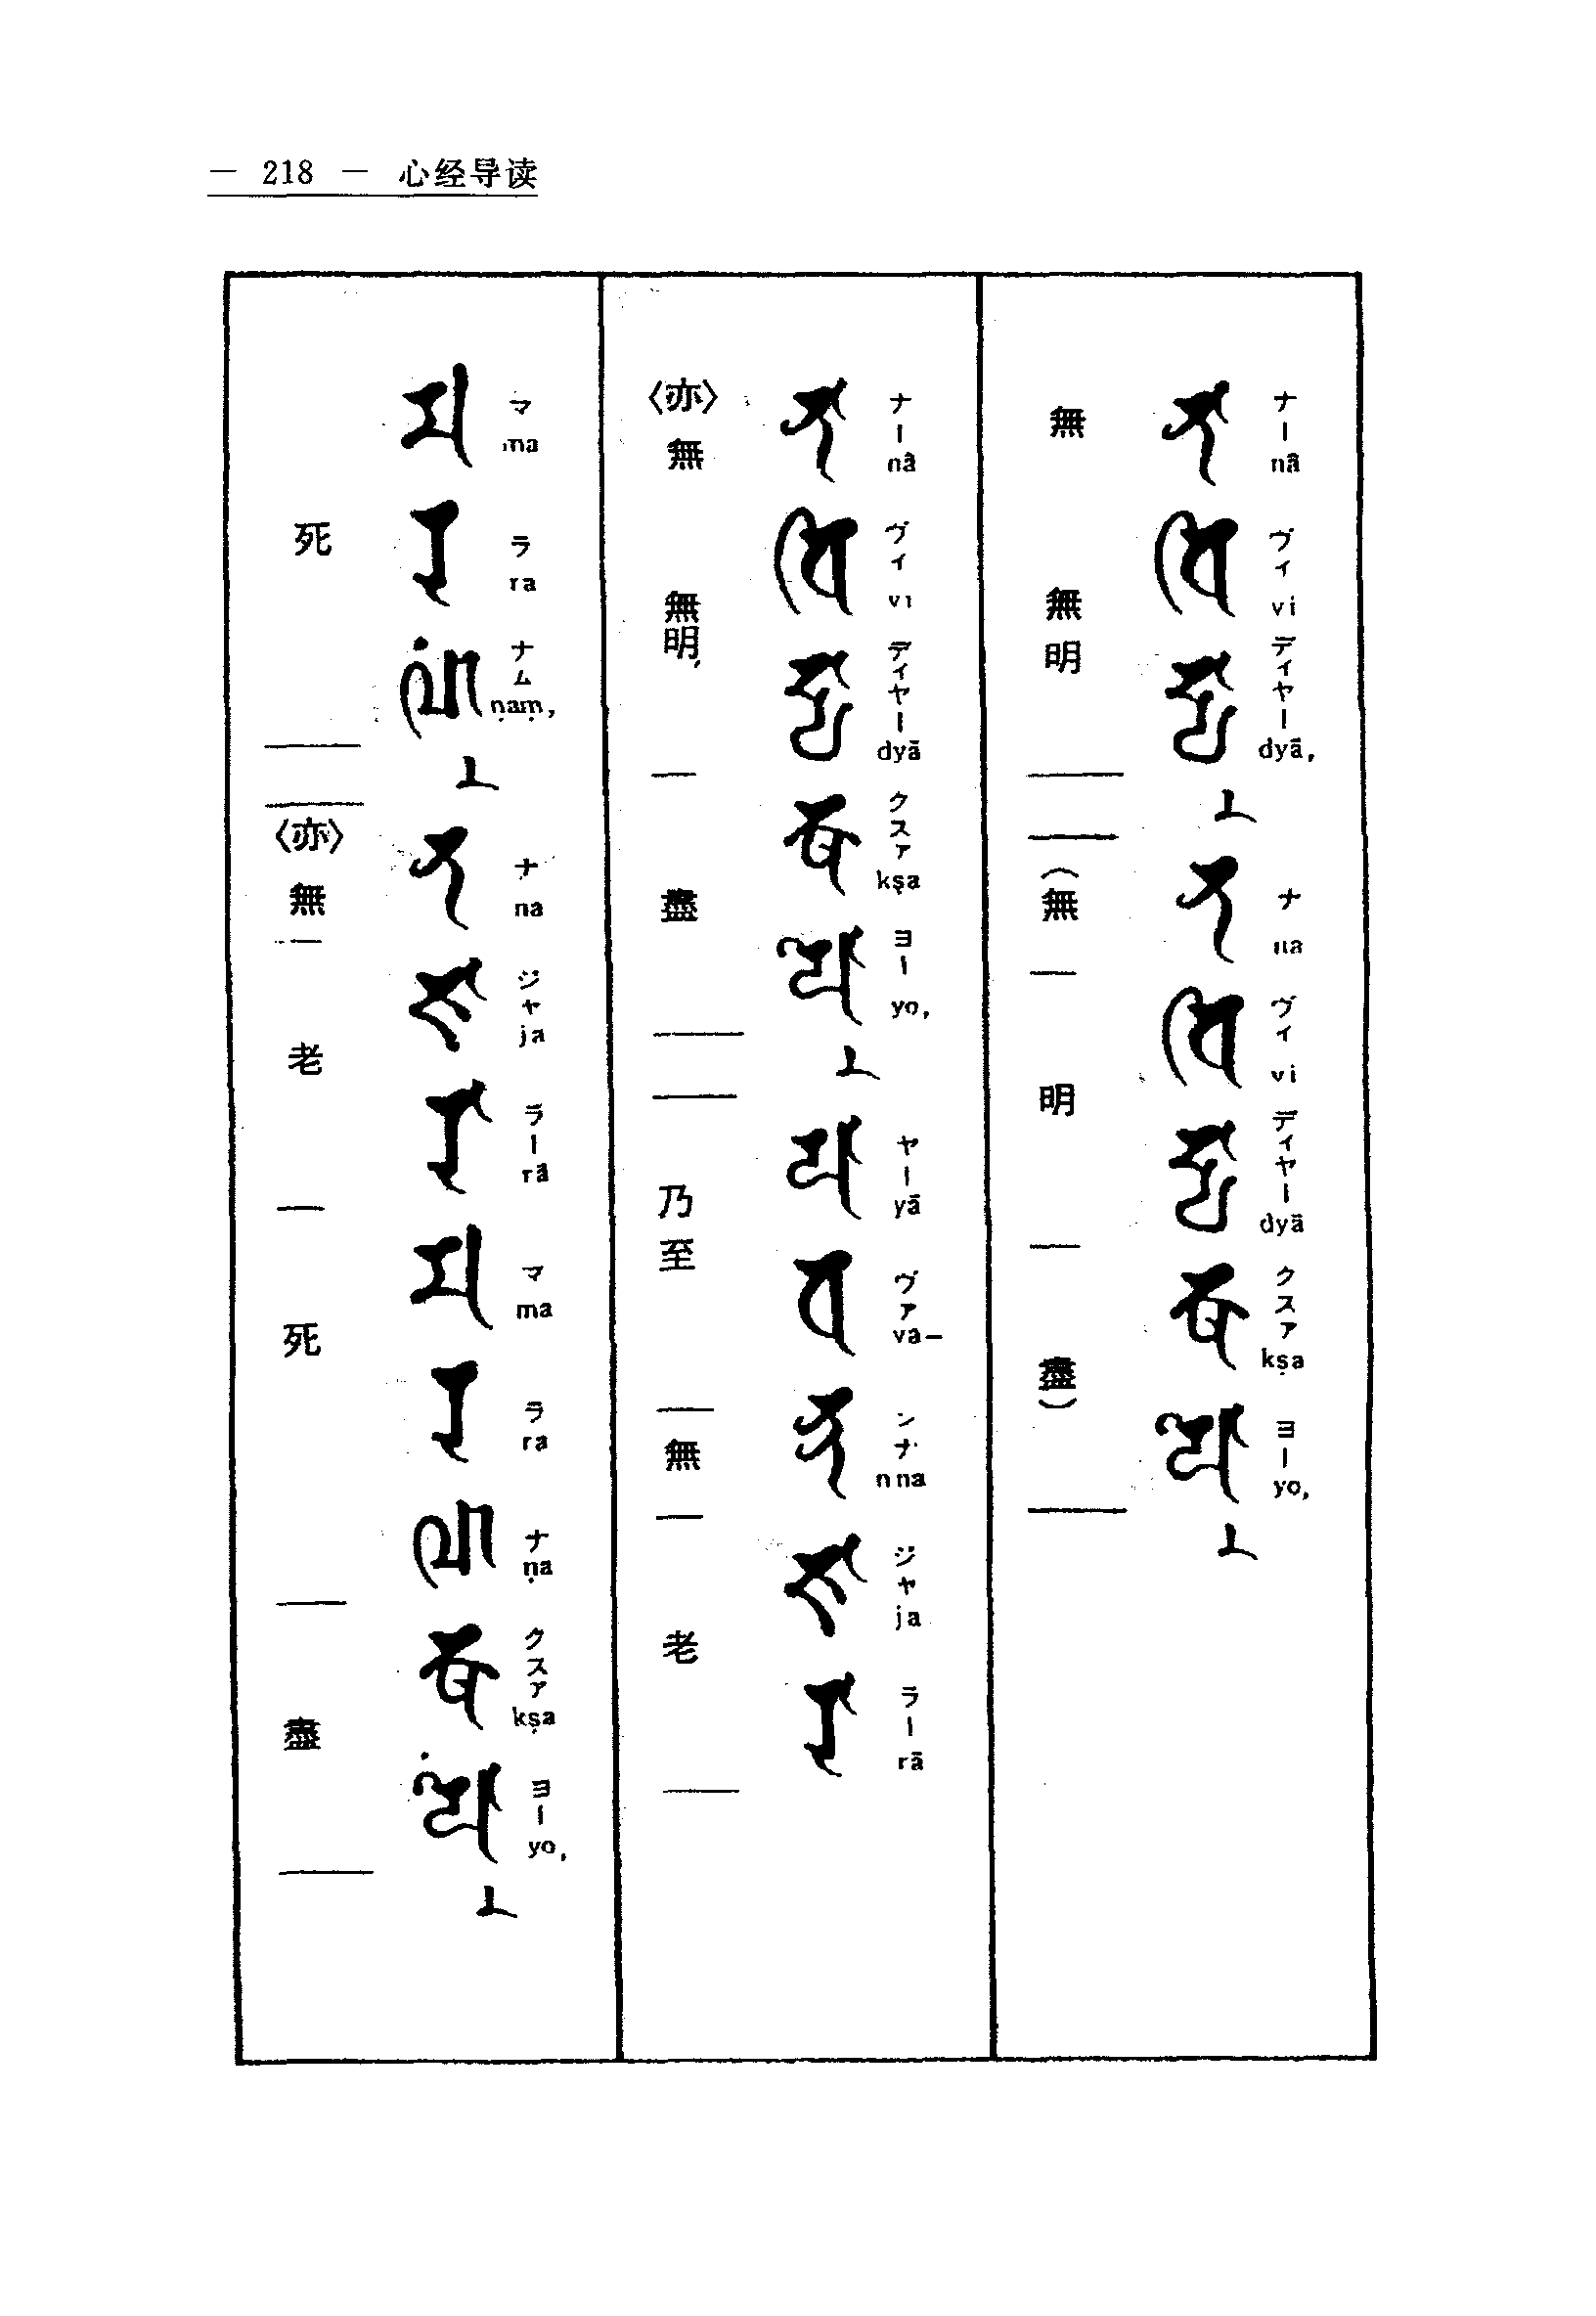 — 218 — 心经导读
ナー nā ヴィ vi ディヤー dyā, ナ na ヴィ vi ディヤー dyā クスァ kṣa ヨー yo,
𑖡𑖯 𑖪𑖰 𑖟𑖿𑖧𑖯 𑖡 𑖪𑖰 𑖟𑖿𑖧𑖯 𑖎𑖿𑖬 𑖧𑖺
無 無明 (無 明 盡)
ナー nā ヴィ vi ディヤー dyā クスァ kṣa ヨー yo, ヤー yā ヴァ va- ンナ nna ジャ ja ラー rā
𑖡𑖯 𑖪𑖰 𑖟𑖿𑖧𑖯 𑖎𑖿𑖬 𑖧𑖺 𑖧𑖯 𑖪 𑖡𑖿𑖡 𑖕 𑖨𑖯
〈亦〉無 無明, 盡 乃至 無 老
マ ma ラ ra ナム ṇaṃ, ナ na ジャ ja ラー rā マ ma ラ ra ナ ṇa クスァ kṣa ヨー yo,
𑖦 𑖨 𑖜𑖽 𑖡 𑖕 𑖨𑖯 𑖦 𑖨 𑖜 𑖎𑖿𑖬 𑖧𑖺
死 〈亦〉無 老 死 盡